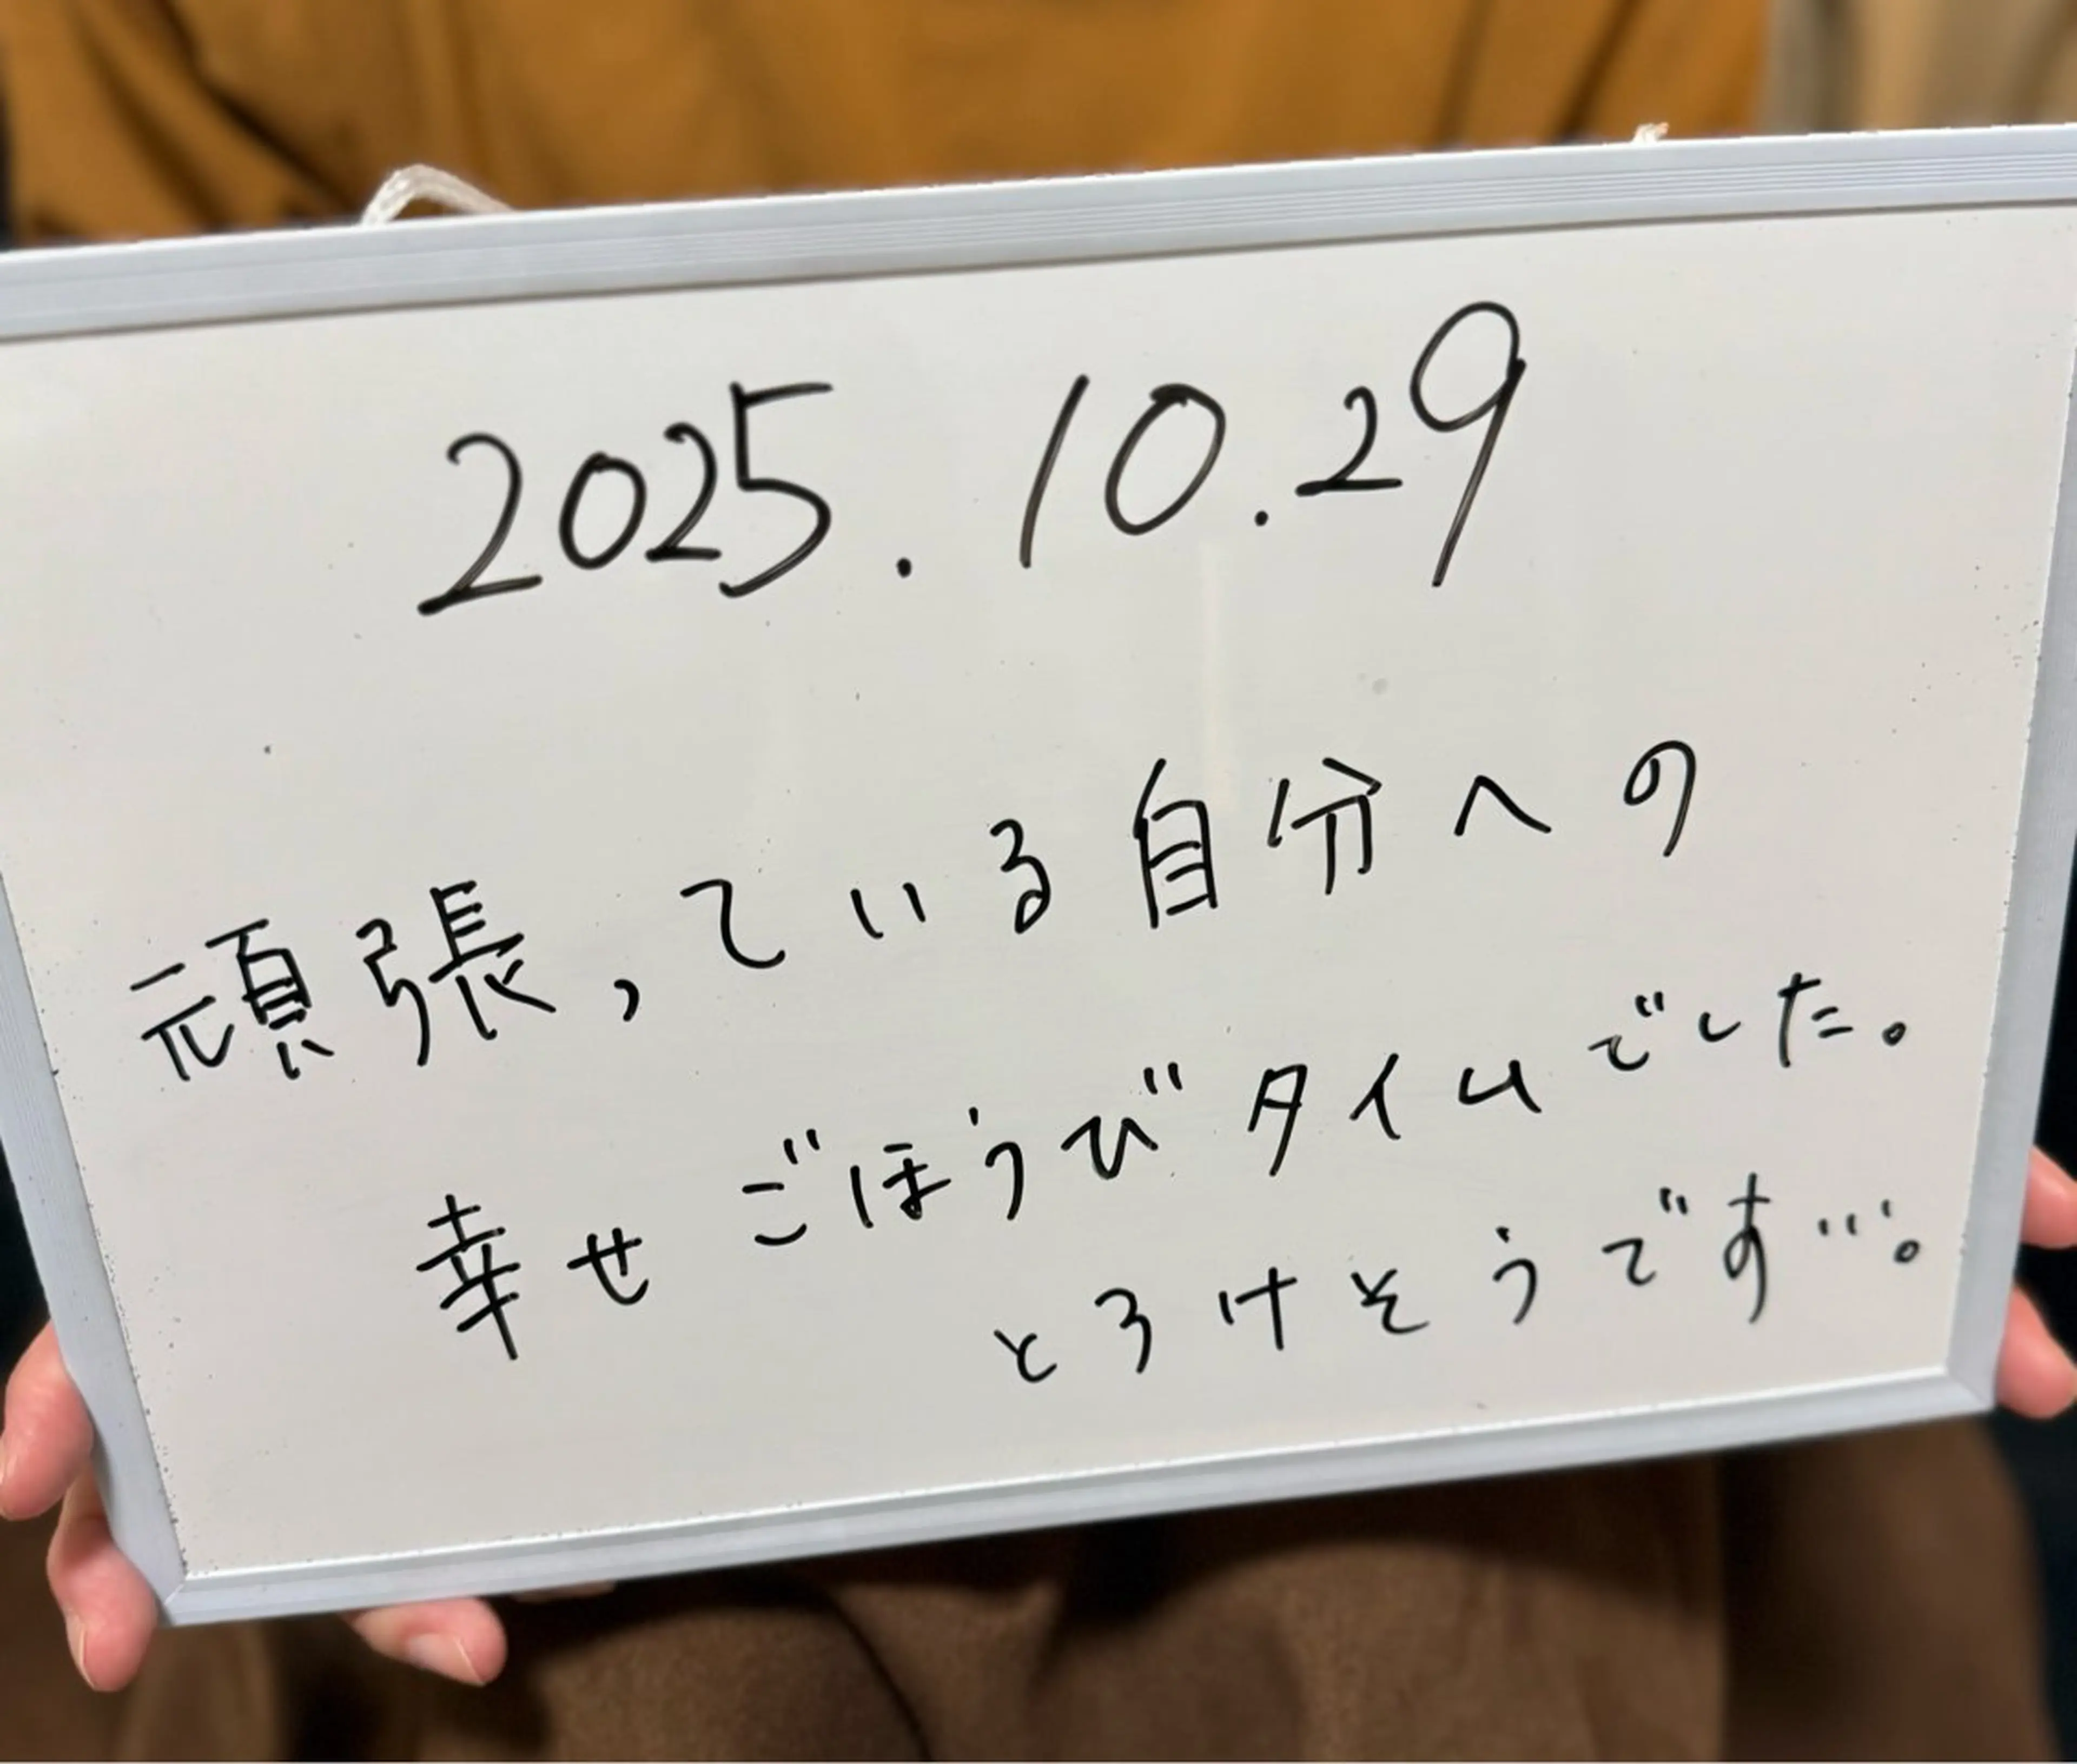 2025.10.29
頑張っている自分への
幸せごほうびタイムでした。
とろけそうです…。